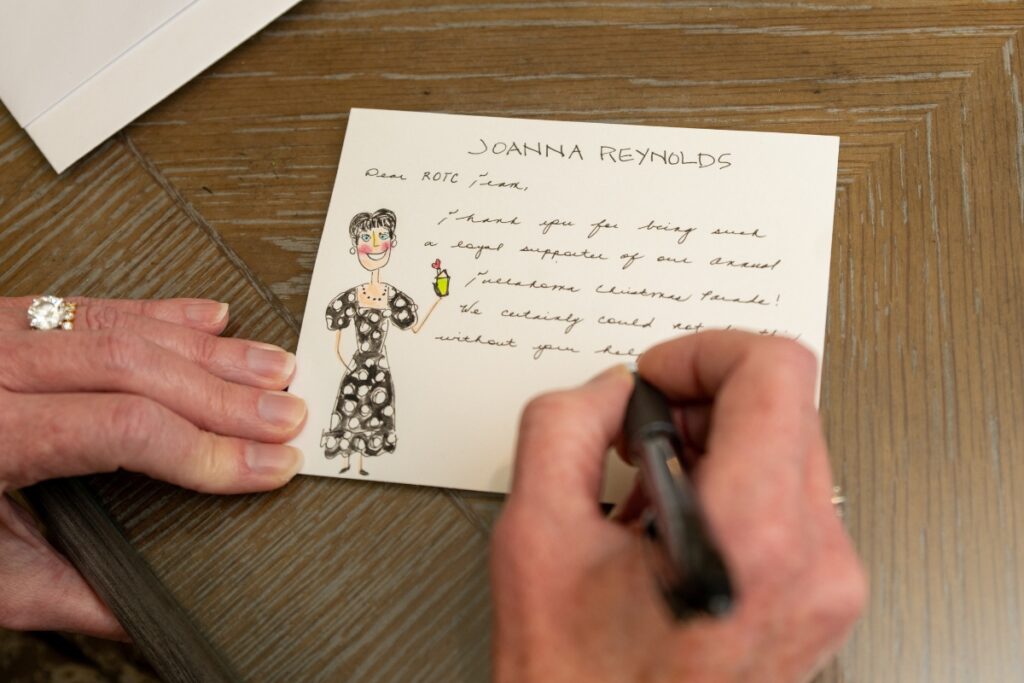 JOANNA REYNOLDS
Dear ROTC Team,
Thank you for being such
a loyal supporter of our annual
Tullahoma Christmas Parade!
We certainly could not
without your